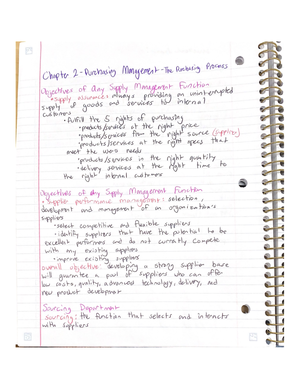 Chapter 2 - Purchasing Management - The Purchasing Process
Objectives of any Supply Management Function
• Supply assurance: always providing an uninterrupted
supply of goods and services to internal
customers
• Fulfill the 5 rights of purchasing
• products/services at the right price
• products/services from the right source (suppliers)
• products/services at the right specs that
meet the users needs
• products/services in the right quantity
• delivery services at the right time to
the right internal customer
Objectives of any Supply Management Function
• Supplier performance management: selection,
development and management of an organization's
suppliers
• select competitive and flexible suppliers
• identify suppliers that have the potential to be
excellent performers and do not currently compete
with my existing suppliers
• improve existing suppliers
overall objective: developing a strong supplier base
will guarantee a pool of suppliers who can offer
low costs, quality, advanced technology, delivery, and
new product development
Sourcing Department
sourcing: the function that selects and interacts
with suppliers